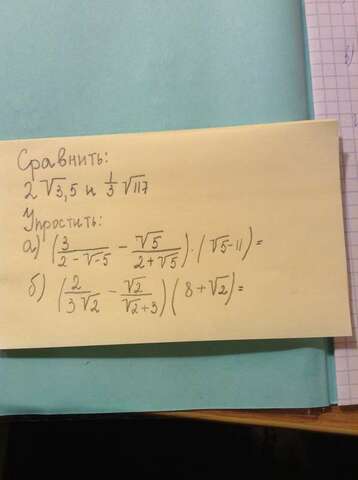 Сравнить:
2√3,5 и 1/3 √117
Упростить:
а) (3/(2-√-5) - √5/(2+√5)) · (√5-11)=
б) (2/(3√2) - √2/(√2+3)) (8+√2)=